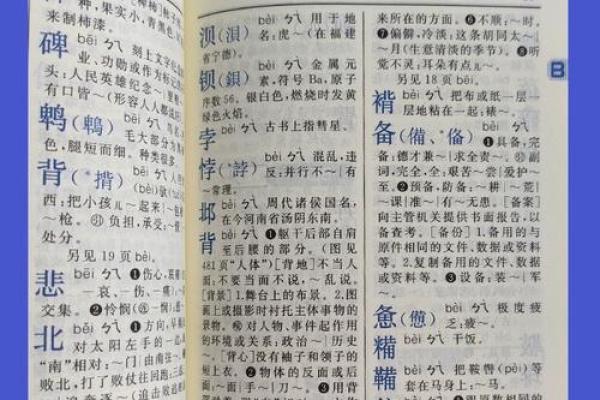 来制柿漆。
碑 bēi ㄅㄟ 刻上文字纪念事
业、功勋或作为标记的石
头：人民英雄纪念～｜里程～｜
有口皆～（形容人人都说好）。
鹎（鵯） bēi ㄅㄟ
毛大部分为黑
色，腿短而细。种类很多。
背（*揹） bēi ㄅㄟ
（bèi）驮东
西：把小孩儿～起来｜
～枪。㉑负担，承受：～债
处分。
另见 19 页 bèi
悲 bēi ㄅㄟ ❶伤心，哀痛：
～哀、～伤、～痛｜
交集。❷怜悯（mǐn）：
北 běi ㄅㄟ ❶方向，早
对太阳左手的一边，跟
“南”相对：～门｜由南往～。
败北，打了败仗往回跑：三战
浿（浿） bèi ㄅㄟ 用于地
名：虎～（在福建
省宁德）。
钡（鋇） bèi ㄅㄟ 金属元
素，符号 Ba，原子
序数 56。银白色，燃烧时发黄
绿色火焰。
孛 bèi ㄅㄟ 古书上指彗星。
悖（*誖） bèi ㄅㄟ 混乱，违
反：并行不～｜有
～常理。
邶 bèi ㄅㄟ 周代诸侯国名，
在今河南省汤阴东南。
背 bèi ㄅㄟ ❶躯干后部自肩
至后腰的部分。（图见
481 页“人体”）［背地］不当人
面：不要当面不说，～乱说。
［背景］1.舞台上的布景。2.图画
上或摄影时衬托主体事物的
景物。㊋对人物、事件起作用
的环境或关系：政治～｜历史
～。［背心］没有袖子和领子的
短上衣。❷物体的反面或后
面：～面｜手～｜刀～。❸用背
来所在的方面。❻不顺：～时。
❼偏僻，冷淡：这条胡同太～
～月（生意清淡的季节）。❽听
觉不灵：耳朵有点儿～。
另见 18 页 bēi
褙 bèi ㄅㄟ 把布或纸一层一
层地粘在一起：裱～。
备（備、*俻） bèi ㄅㄟ
❶具备，完
备：德才兼～｜求全责～。㉑副
词，完全：～尝艰苦｜爱护～
至。❷预备，防备：～耕｜～荒｜
～课｜准～｜有～无患。［备案］
向主管机关提供书面报告，以
备查考。［备份］1.备用的与
原件相同的文件、数据或资料
等。2.复制备用的文件、数据
或资料等。❸设备：装～｜军
～。
惫（憊） bèi ㄅㄟ 极度疲
乏：疲～。
糒 bèi ㄅㄟ 干饭。
鞴 bèi ㄅㄟ 把鞍辔（pèi）等
套在马身上：～马。
B